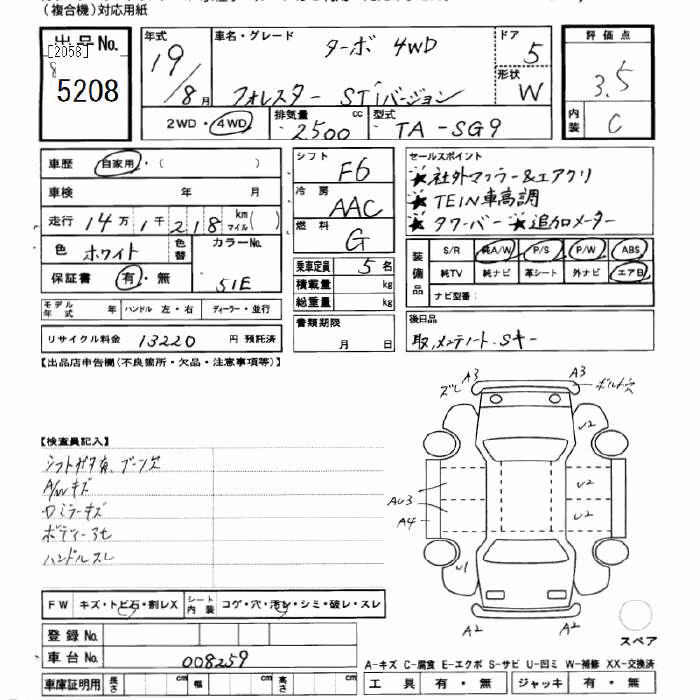 (複合機)対応用紙
出品No.
[2058]
8
5208
年式
19/8月
車名・グレード
ターボ 4WD
フォレスター STiバージョン
ドア
5
形状
W
評価点
3.5
内装
C
2WD・4WD
排気量
2500cc
型式
TA-SG9
車歴
自家用・( )
車検
年 月
走行
14万1千218
km
マイル
( )
色
ホワイト
色替
カラーNo.
51E
保証書
有・無
モデル年式
年
ハンドル 左・右
ディーラー・並行
リサイクル料金
13220
円 預託済
シフト
F6
冷房
AAC
燃料
G
乗車定員
5名
積載量
kg
総重量
kg
書類期限
月 日
セールスポイント
★社外マフラー&エアクリ
★TEIN車高調
★タワーバー ★追加メーター
装備品
S/R
純A/W
P/S
P/W
ABS
純TV
純ナビ
革シート
外ナビ
エアB
ナビ型番:
後日品
取,メンテノート.Sキー
【出品店申告欄(不良箇所・欠品・注意事項等)】
【検査員記入】
A/Wキズ
ロミラーキズ
ハンドルスレ
ズレ
A3
A3
ボルト欠
U2
U2
U2
AU3
A4
U1
A2
A2
スペア
FW
キズ・トビ石・割レX
シート内装
コゲ・穴・汚レ・シミ・破レ・スレ
登録No.
車台No.
008259
車庫証明用
長さ
cm
幅
cm
高さ
cm
A-キズ C-腐食 E-エクボ S-サビ U-凹ミ W-補修 XX-交換済
工具
有・無
ジャッキ
有・無